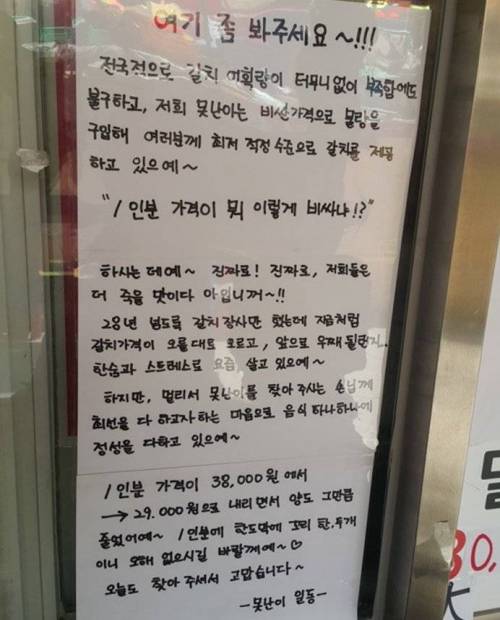 여기 좀 봐주세요~!!!
전국적으로 갈치 어획량이 터무니없이 부족함에도
불구하고, 저희 못난이는 비싼가격으로 물량을
구입해 여러분께 최저 적정수준으로 갈치를 제공
하고 있으예~
"1인분 가격이 뭐 이렇게 비싸냐!?"
하시는데예~ 진짜로! 진짜로, 저희들은
더 죽을 맛이다 아입니꺼~!!
28년 넘도록 갈치장사만 했는데 지금처럼
갈치가격이 오를대로 오르고, 앞으로 우째될런지..
한숨과 스트레스로 요즘 살고 있으예~
하지만, 멀리서 못난이를 찾아주시는 손님께
최선을 다하고자하는 마음으로 음식 하나하나에
정성을 다하고 있으예~
1인분 가격이 38,000원에서
→29.000원으로 내리면서 양도 그만큼
줄었어예~ 1인분에 한도막에 꼬리 한,두개
이니 오해 없으시길 바랄께예~♡
오늘도 찾아주셔서 고맙습니다~
-못난이 일동-
30,